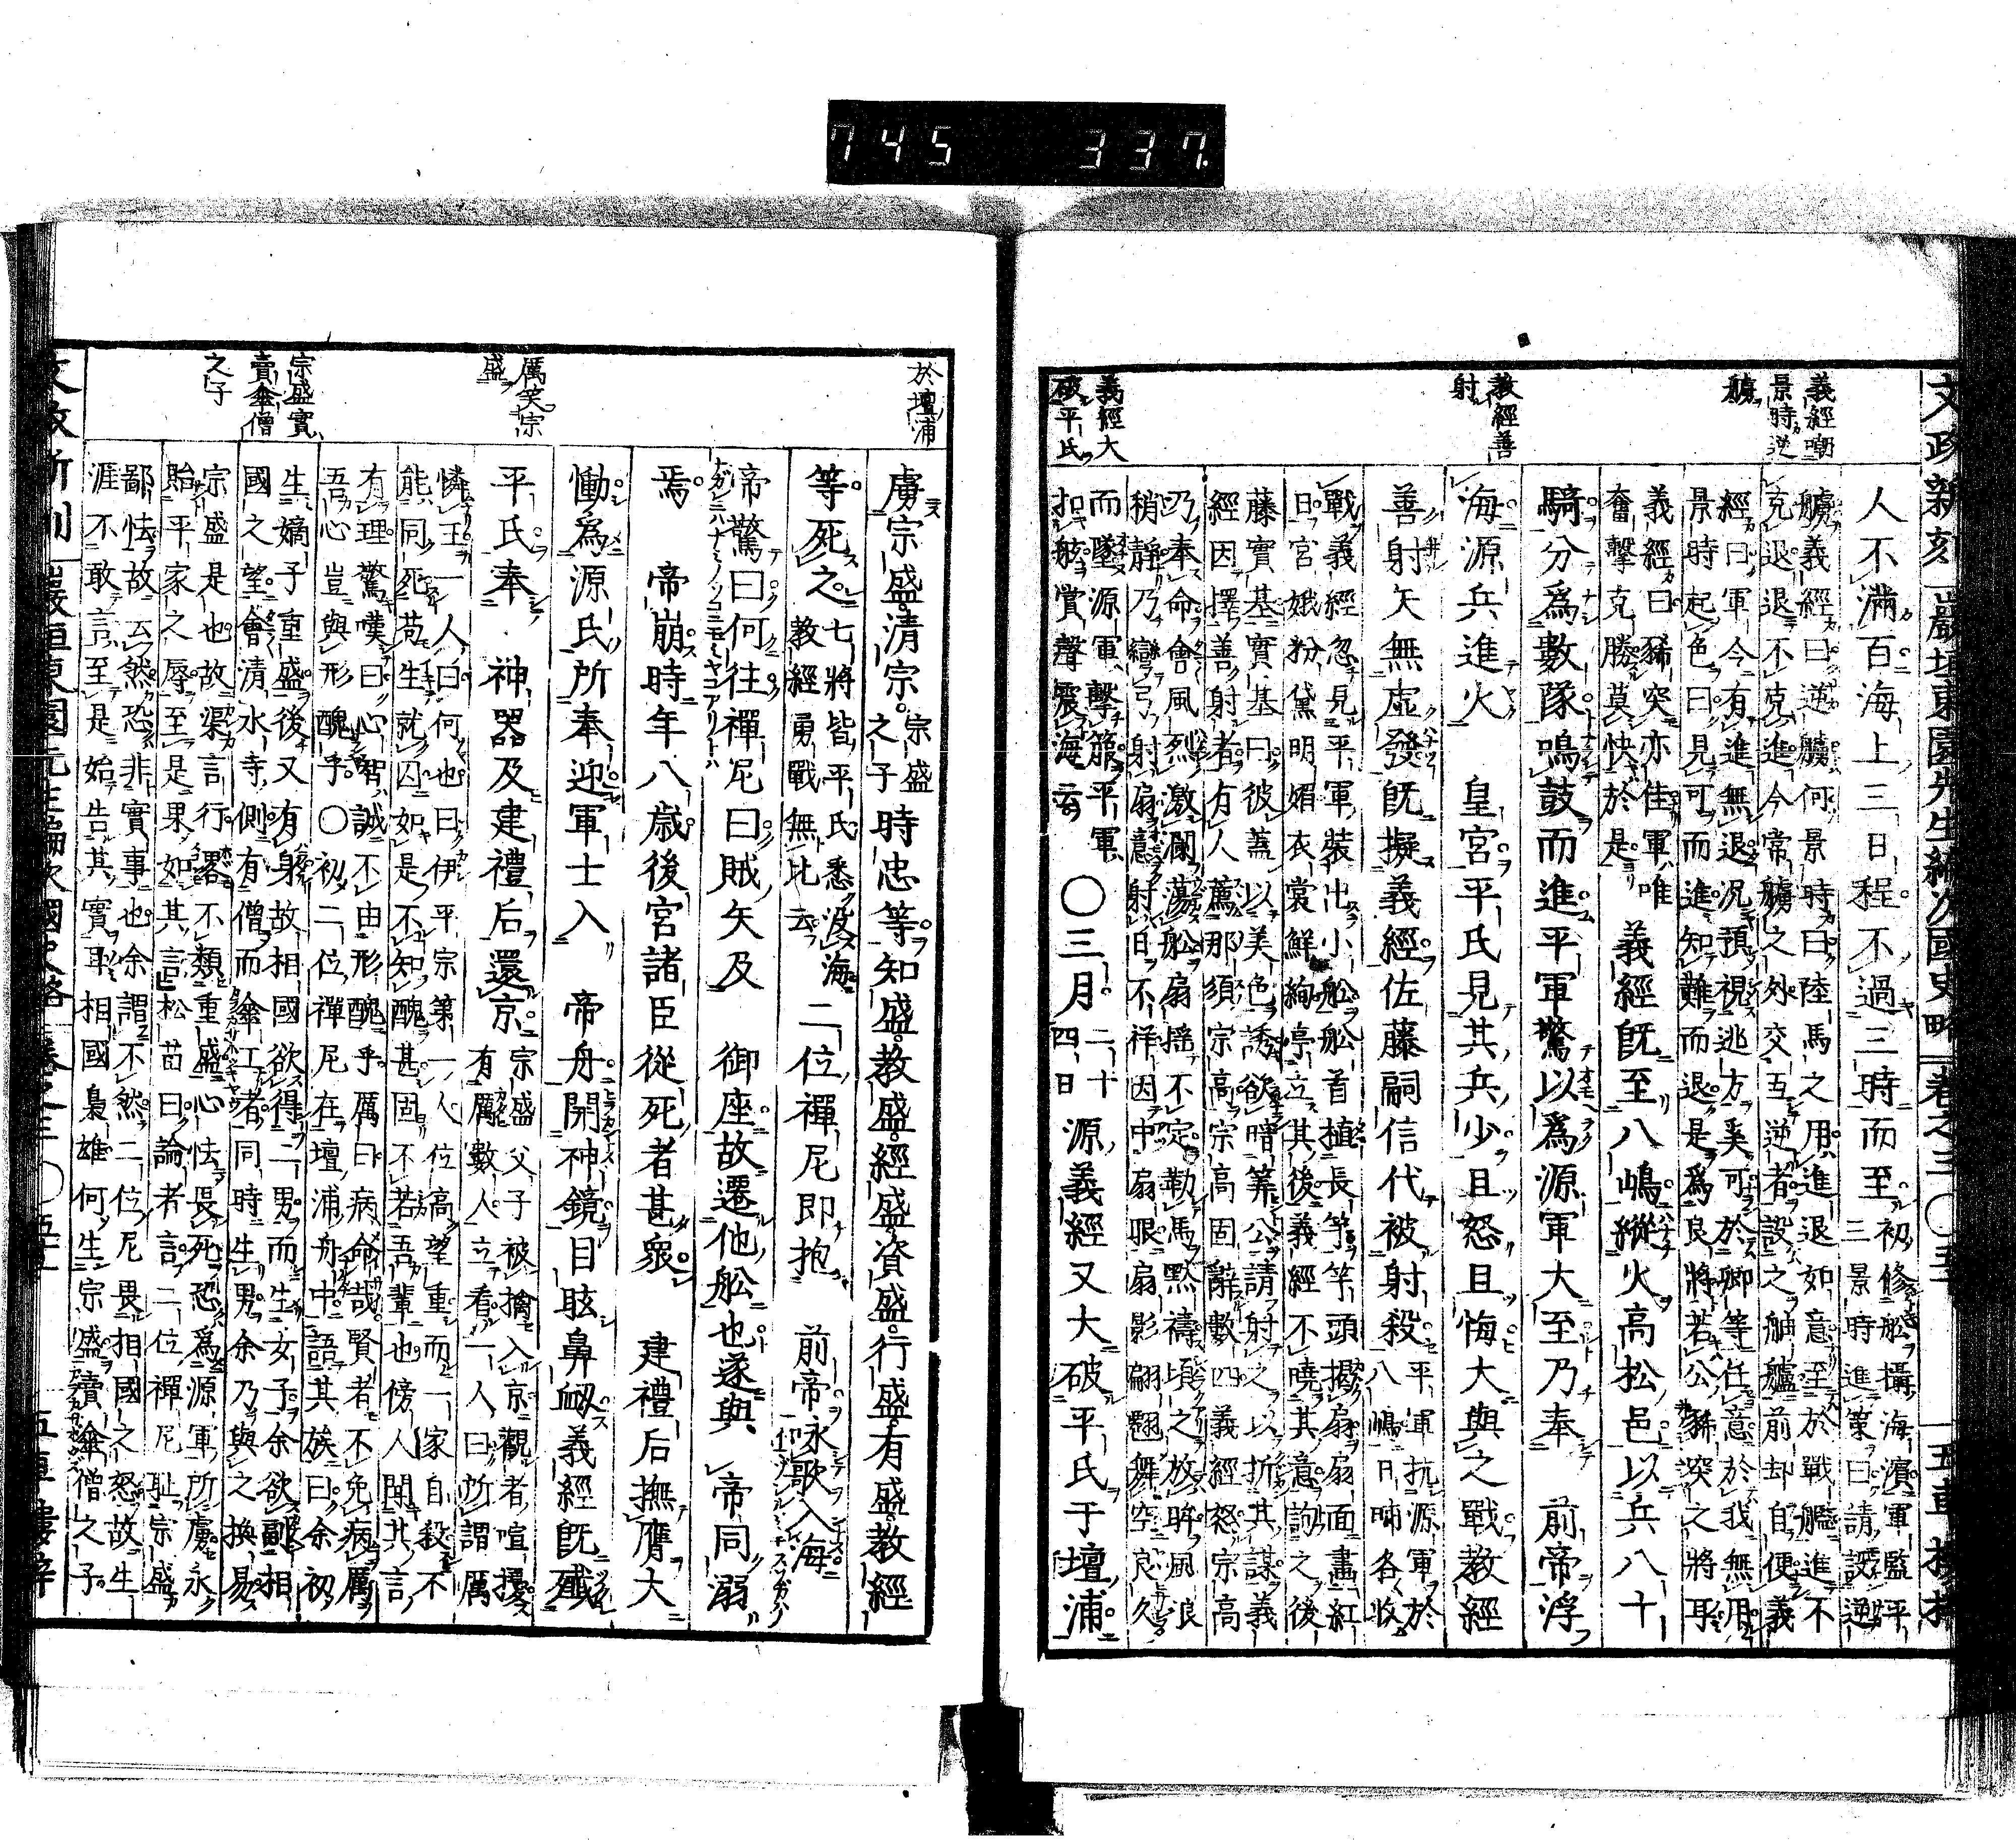 745 337.
文政新刻 巖垣東園先生編次國史略 卷之三 〇五十
義經嘲
景時逆
艣
教經善
射
義經大
破平氏
人不滿百海上三日程不過三時而至
初修船攝海濱軍監平
三景時進策曰請設逆
艣義經曰逆艣何景時曰陸馬之用進退如意至於戰艦進不
克退退不克進今常艣之外交互逆者設之舳艫前却自便義
經曰軍今有進無退况預視逃方奚可於卿等任意於我無用
景時起色曰見可而進知難而退是爲良將若公豨突之將耳
義經曰豨突亦佳軍唯
奮擊克勝莫快於是
義經既至八嶋縱火高松邑以兵八十
騎分爲數隊鳴鼓而進平軍驚以爲源軍大至乃奉 前帝浮
海源兵進火 皇宮平氏見其兵少且怒且悔大與之戰教經
善射矢無虛發既擬義經佐藤嗣信代被射殺
平軍抗源軍於
八嶋日晡各收
戰義經忽見平軍裝出小船船首植長竿竿頭擢扇扇面畫紅
日宮娥粉黛明媚衣裳鮮絢停立其後義經不曉其意詢之後
藤實基實基曰彼蓋以美色誘欲暗筭公請射之以折其謀義
經因擇善射者有人薦那須宗高宗高固辭數四義經怒宗高
乃奉命會風烈激瀾蕩船扇搖不定勒馬默禱頃之放眸風浪
稍靜乃彎弓射扇意射日不祥因中扇眼扇影翩翻舞空良久
而墜源軍擊箙平軍
扣舷賞聲震海云
〇三月
二十
四日
源義經又大破平氏于壇浦
於壇浦
厲笑宗
盛
宗盛實
賣傘僧
之子
虜宗盛清宗
宗盛
之子
時忠等知盛教盛經盛資盛行盛有盛教經
等死之
七將皆平氏悉沒海
教經勇戰無比云
二位禪尼即抱 前帝永歌入海
帝驚曰何往禪尼曰賊矢及 御座故遷他船也遂與 帝同溺
焉 帝崩時年八歲後宮諸臣從死者甚衆 建禮后撫膺大
慟爲源氏所奉迎軍士入 帝舟開神鏡目眩鼻衂義經既殲
平氏奉 神器及建禮后還京
宗盛父子被擒入京觀者喧擾
有厲數人立看一人曰所謂厲
憐王一人曰何也曰伊平宗第一人位高望重而一家自殺不
能同死苟生就囚如是不知醜甚固不若吾輩也傍人聞其言
有理驚嘆曰心智誠不由形醜乎厲曰病命哉賢者不免病厲
吾心豈與形醜乎〇初二位禪尼在壇浦舟中語其族曰余初
生嫡子重盛後又有身故相國欲得二男而生女子余欲副相
國之望會清水寺側有僧而傘工者同時生男余乃與之換易
宗盛是也故渠言行畧不類重盛心怯畏死恐爲源軍所虜永
貽平家之辱至是果如其言松苗曰論者言二位禪尼耻宗盛
鄙怯故云然恐非實事也余謂不然二位尼畏相國之怒故生
涯不敢言至是始告其實耳相國梟雄何生宗盛賣傘僧之子